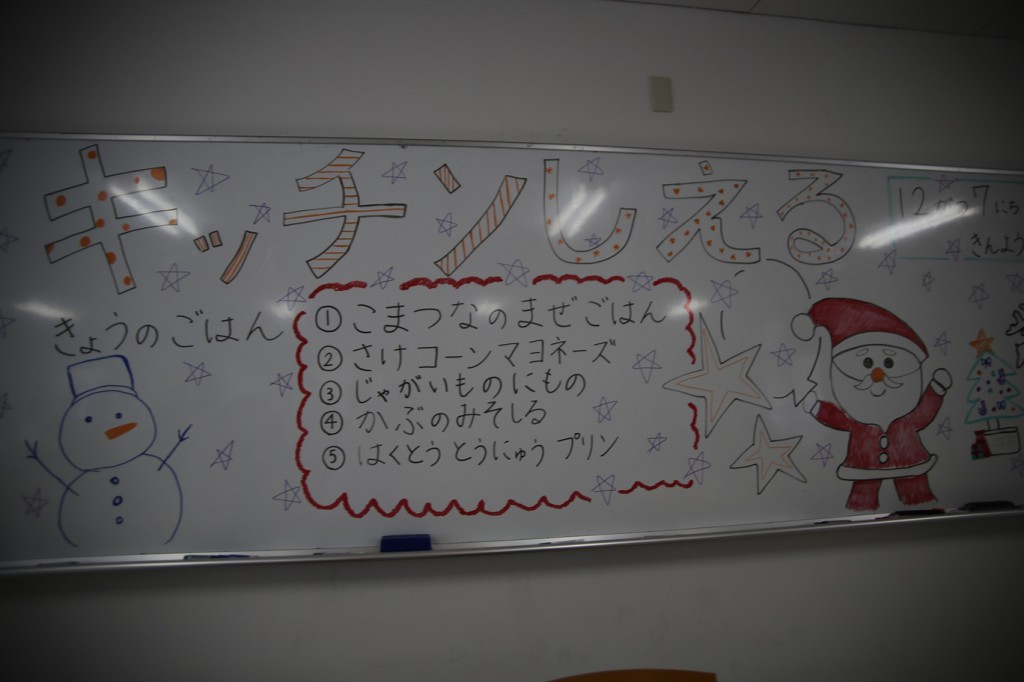 キッチンしえる
12がつ7にち
きんよう
きょうのごはん
① こまつなのまぜごはん
② さけコーンマヨネーズ
③ じゃがいものにもの
④ かぶのみそしる
⑤ はくとうとうにゅうプリン